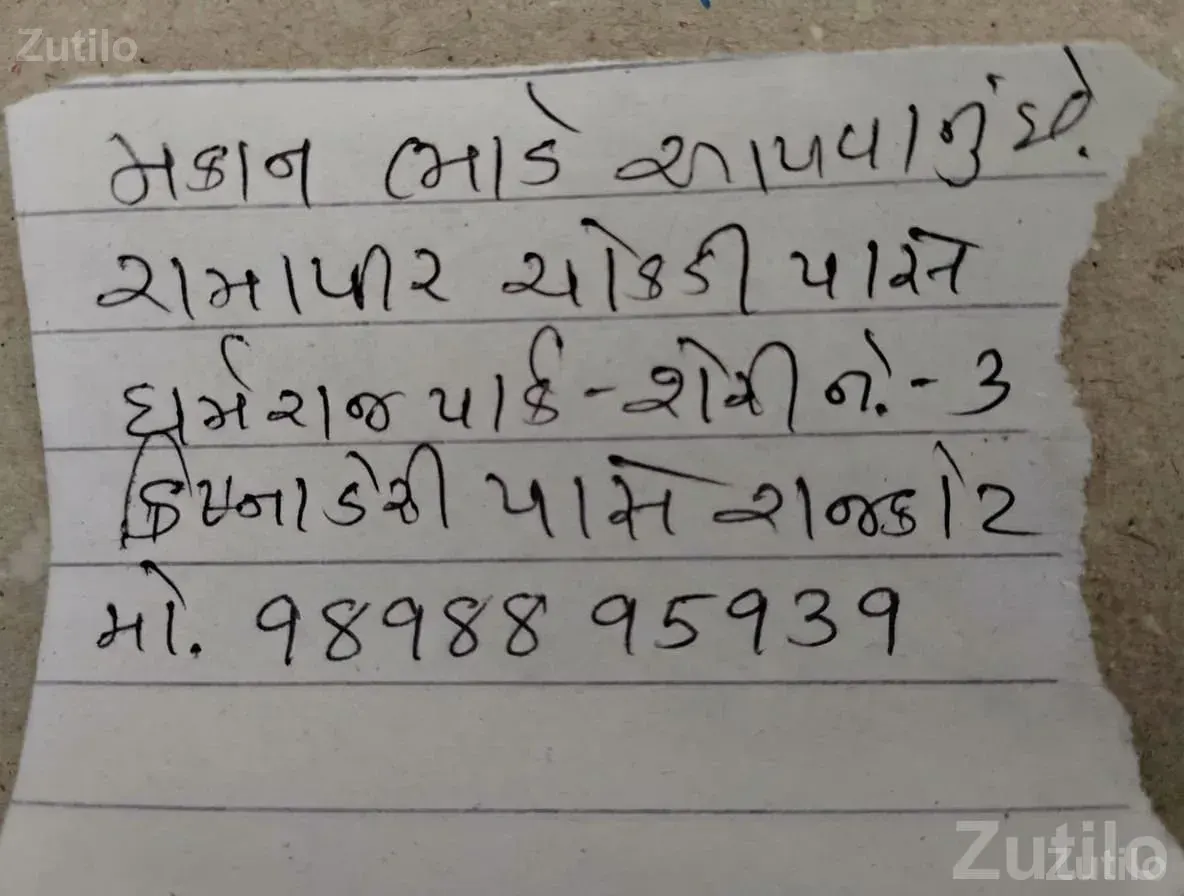 Zutilo
મકાન ભાડે આપવાનું છે.
રામાપીર ચોકડી પાસે
ધર્મરાજ પાર્ક - શેરી નં. - 3
ક્રિષ્ના ડેરી પાસે રાજકોટ
મો. 98988 95939
Zutilo
Zutilo